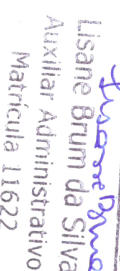 Lisane Brum
Lisane Brum da Silva
Auxiliar Administrativo
Matricula 11622